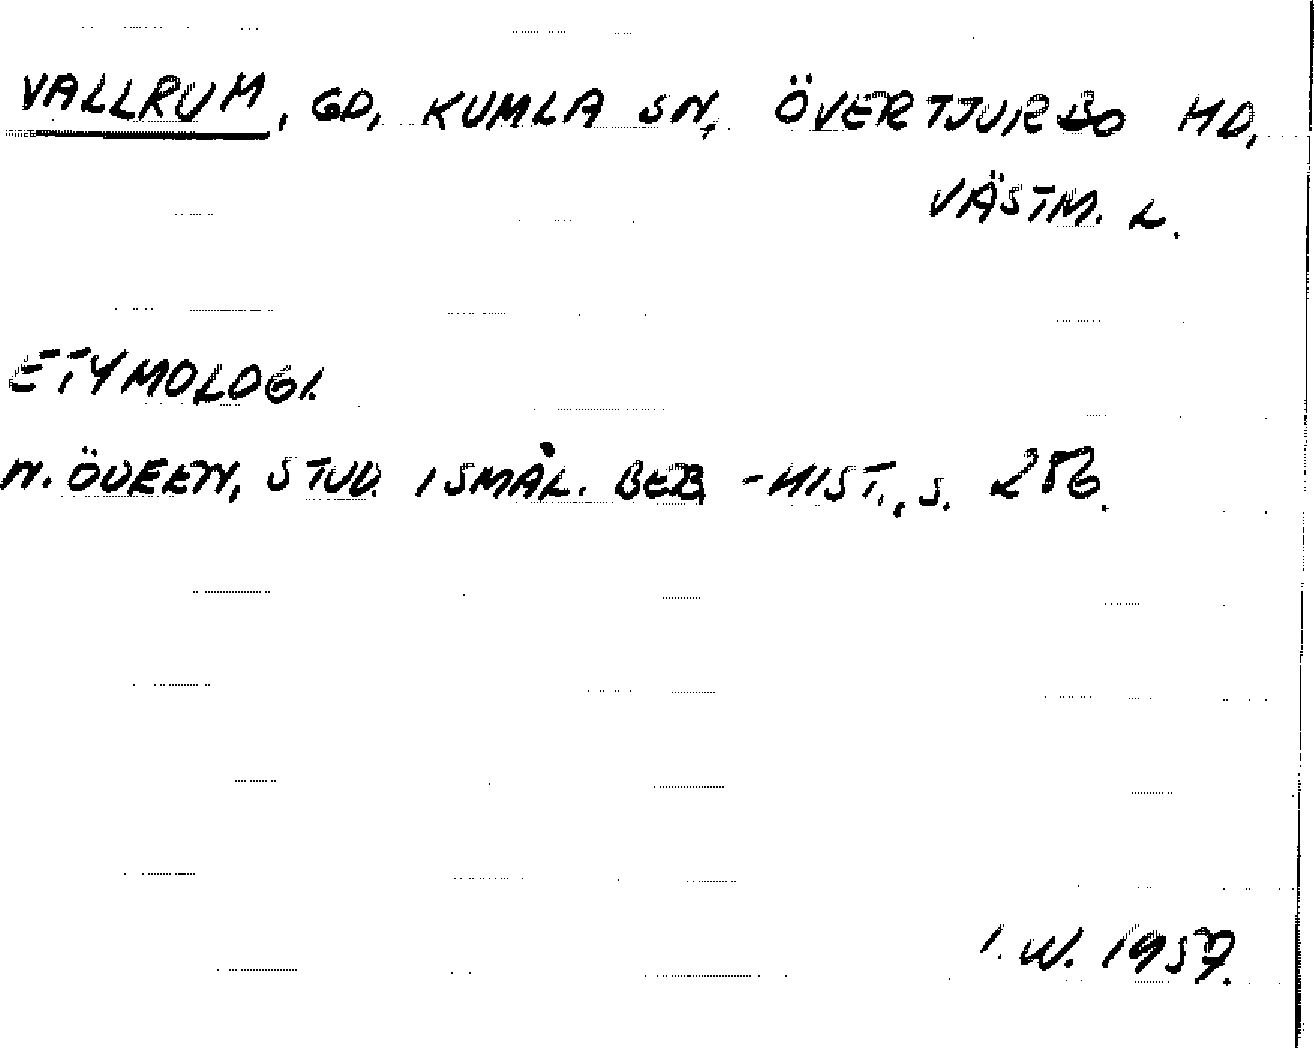 VALLRUM, GD, KUMLA SN, ÖVERTJURBO HD,
VÄSTM. L.
ETYMOLOGI.
N. ÖDEEN, STUD. I SMÅL. BEB-HIST., S. 256.
I. W. 1957.